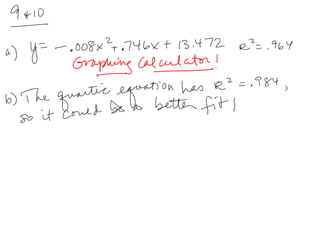 9 & 10
a) y = -.008x² + .746x + 13.472 R² = .964
Graphing Calculator!
b) The quartic equation has R² = .984,
so it could be a better fit!